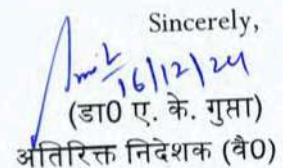 Sincerely,
16/12/24
(डा0 ए. के. गुप्ता)
अतिरिक्त निदेशक (वै0)